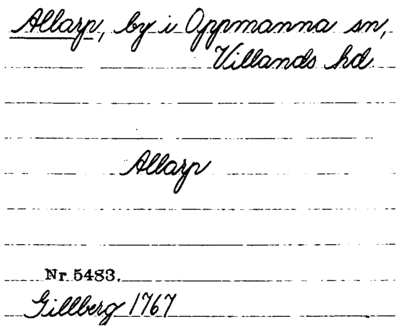 Allarp, by i Oppmanna sn,
Villands hd
Allarp
Nr 5483.
Gillberg 1767